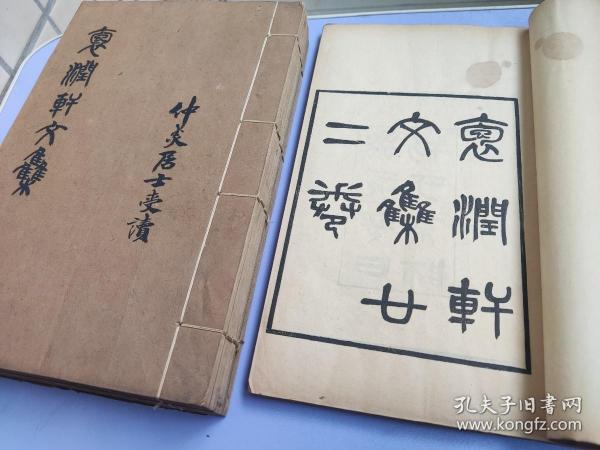 悳潤軒文集
仲炎居士受讀
悳潤軒
文集廿
二卷
孔夫子旧书网
www.kongfz.com